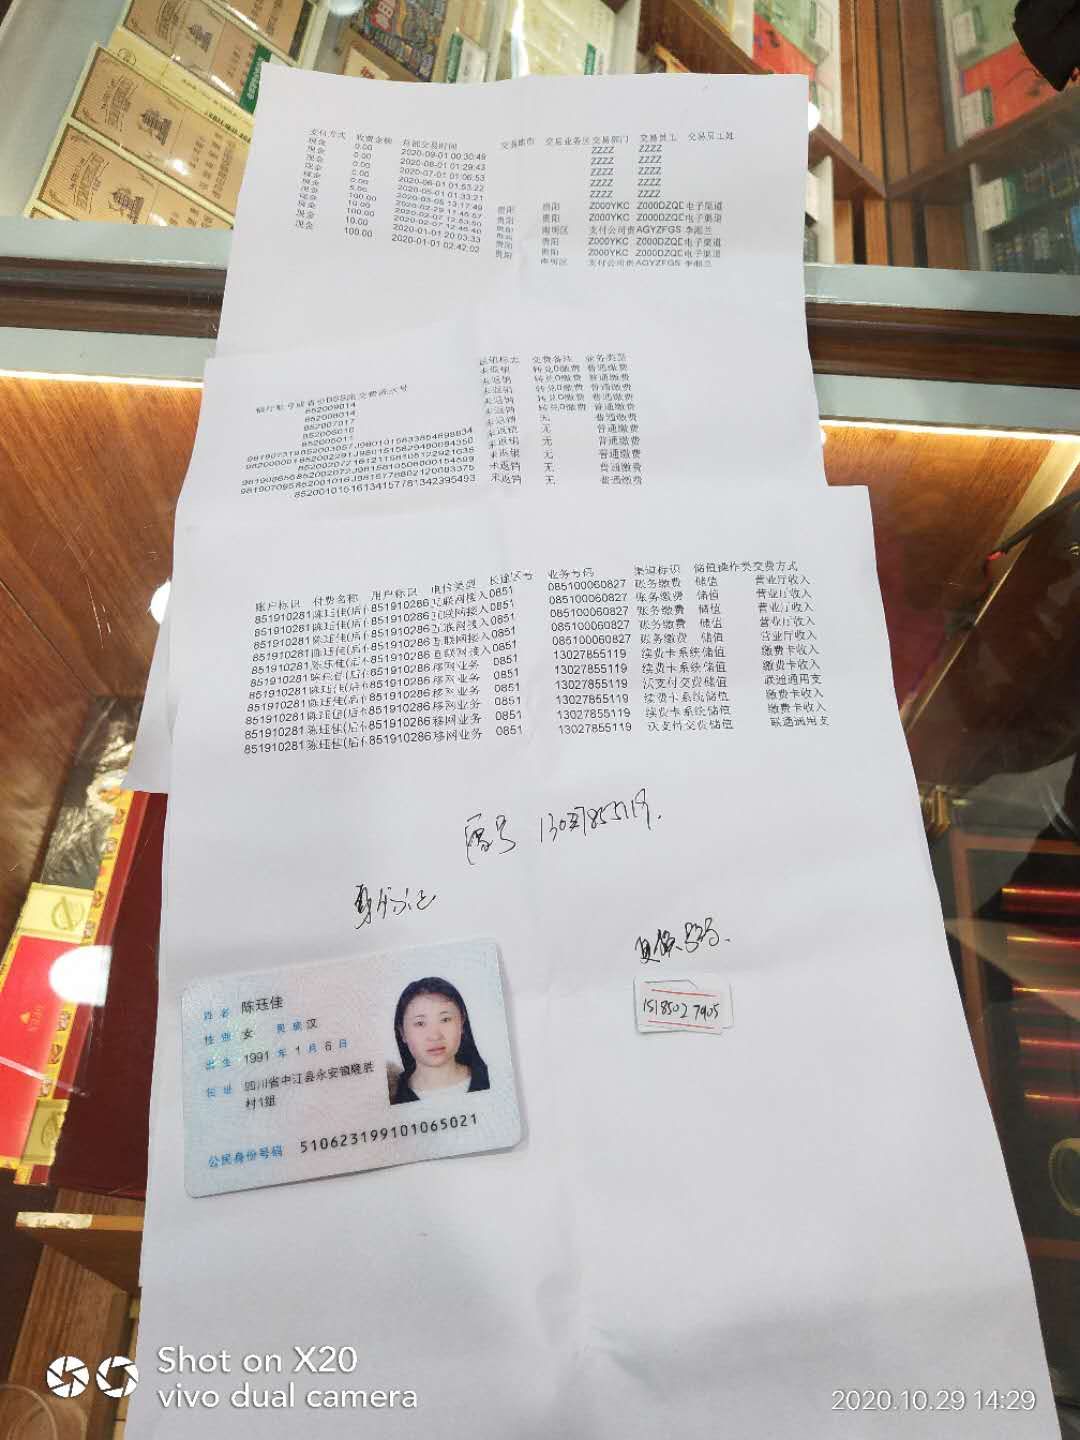 支付方式 收费金额 后部交易时间 交易城市 交易业务区 交易部门 交易员工 交易员工姓
现金 0.00 2020-09-01 00:30:49 ZZZZ ZZZZ
现金 0.00 2020-08-01 01:29:43 ZZZZ ZZZZ
现金 0.00 2020-07-01 01:06:53 ZZZZ ZZZZ
现金 0.00 2020-06-01 01:53:22 ZZZZ ZZZZ
现金 0.00 2020-05-01 01:33:21 ZZZZ ZZZZ
现金 5.00 2020-03-05 13:17:49 贵阳 贵阳 Z000YKC Z000DZQD 电子渠道
现金 100.00 贵阳 贵阳 Z000YKC Z000DZQD 电子渠道
现金 10.00 贵阳 南明区 支付公司贵 AGYZFGS
现金 100.00 贵阳 贵阳 Z000YKC Z000DZQD 电子渠道
现金 10.00 2020-01-01 20:03:33
100.00 2020-01-01 02:42:02 贵阳 南明区 支付公司贵 AGYZFGS
返销标志 交费备注 业务类型
未返销 转兑0缴费 普通缴费
852009014 未返销 转兑0缴费 普通缴费
852008014 未返销 转兑0缴费 普通缴费
852007017 未返销 转兑0缴费 普通缴费
未返销 转兑0缴费 普通缴费
未返销 无 普通缴费
未返销 无 普通缴费
未返销 无 普通缴费
未返销 无 普通缴费
852001015161341577813424395493 未返销 无 普通缴费
账户标识 付费名称 用户标识 电信类型 长途区号 业务号码 渠道标识 储值操作类 交费方式
851910281 陈珏佳(后付 851910286 互联网接入 0851 085100060827 账务缴费 储值 营业厅收入
851910281 陈珏佳(后付 851910286 互联网接入 0851 085100060827 账务缴费 储值 营业厅收入
851910281 陈珏佳(后付 851910286 互联网接入 0851 085100060827 账务缴费 储值 营业厅收入
851910281 陈珏佳(后付 851910286 互联网接入 0851 085100060827 账务缴费 储值 营业厅收入
851910281 陈珏佳(后付 851910286 互联网接入 0851 085100060827 账务缴费 储值 营业厅收入
851910281 陈珏佳(后付 851910286 移网业务 0851 13027855119 续费卡系统 储值 缴费卡收入
851910281 陈珏佳(后付 851910286 移网业务 0851 13027855119 续费卡系统 储值 缴费卡收入
851910281 陈珏佳(后付 851910286 移网业务 0851 13027855119 沃支付交费 储值 联通通用支
851910281 陈珏佳(后付 851910286 移网业务 0851 13027855119 续费卡系统 储值 缴费卡收入
851910281 陈珏佳(后付 851910286 移网业务 0851 13027855119 续费卡系统 储值 缴费卡收入
851910281 陈珏佳(后付 851910286 移网业务 0851 13027855119 沃支付交费 储值 联通通用支
靓号 13027855119.
身份证
姓名 陈珏佳
性别 女 民族 汉
出生 1991 年 1 月 6 日
住址 四川省中江县永安镇隆胜
村1组
公民身份号码 510623199101065021
15185027905
Shot on X20
vivo dual camera
2020.10.29 14:29